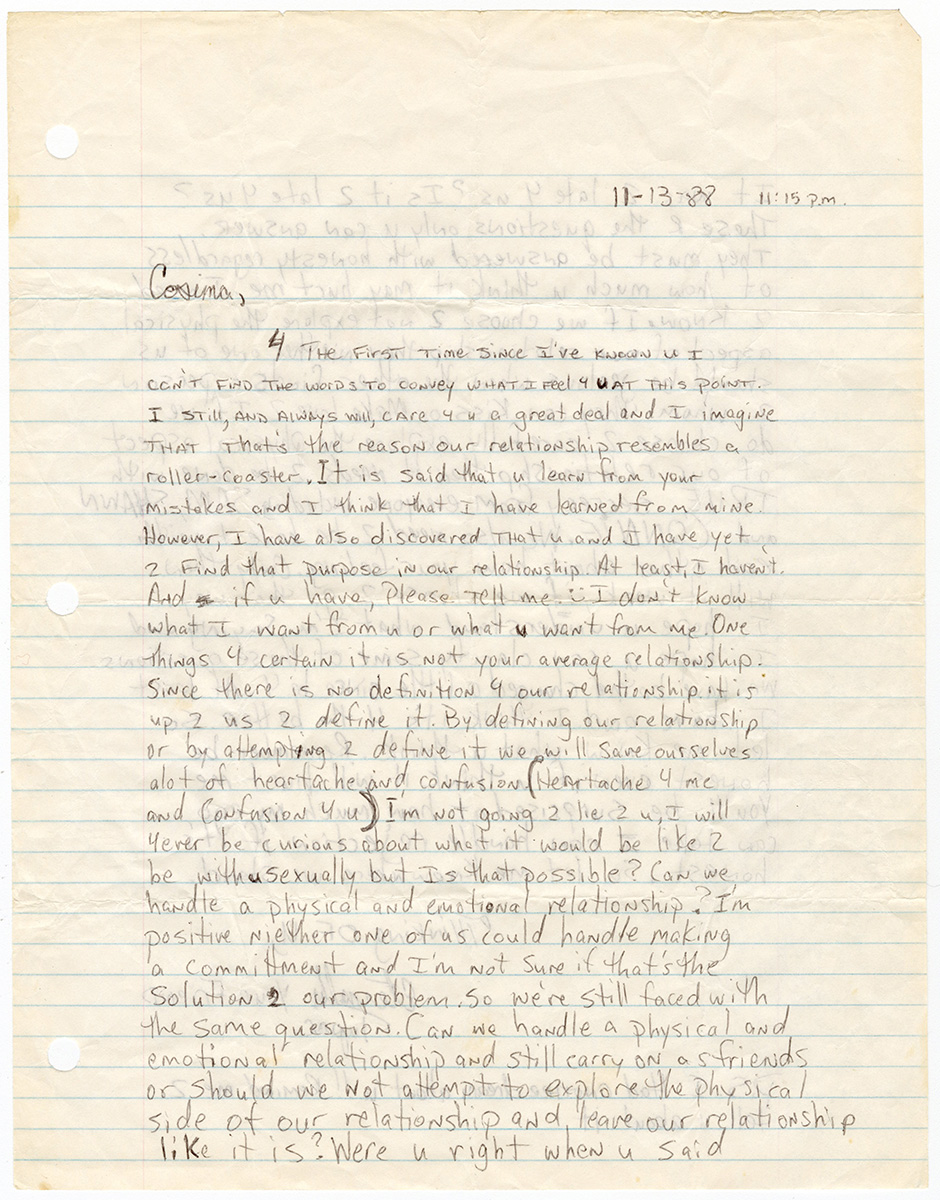 11-13-88 11:15 p.m.
Cosima,
4 The first time since I've known u I
can't find the words to convey what I feel 4 u at this point.
I still, and always will, care 4 u a great deal and I imagine
that that's the reason our relationship resembles a
roller-coaster. It is said that u learn from your
mistakes and I think that I have learned from mine.
However, I have also discovered that u and I have yet
2 find that purpose in our relationship. At least, I haven't.
And if u have, please tell me. I don't know
what I want from u or what u want from me. One
things 4 certain it is not your average relationship.
Since there is no definition 4 our relationship it is
up 2 us 2 define it. By defining our relationship
or by attempting 2 define it we will save ourselves
alot of heartache and confusion (Heartache 4 me
and Confusion 4 u) I'm not going 2 lie 2 u, I will
4ever be curious about what it would be like 2
be with u sexually but Is that possible? Can we
handle a physical and emotional relationship? I'm
positive niether one of us could handle making
a committment and I'm not sure if that's the
solution 2 our problem. So we're still faced with
the same question. Can we handle a physical and
emotional relationship and still carry on as friends
or should we not attempt to explore the physical
side of our relationship and leave our relationship
like it is? Were u right when u said